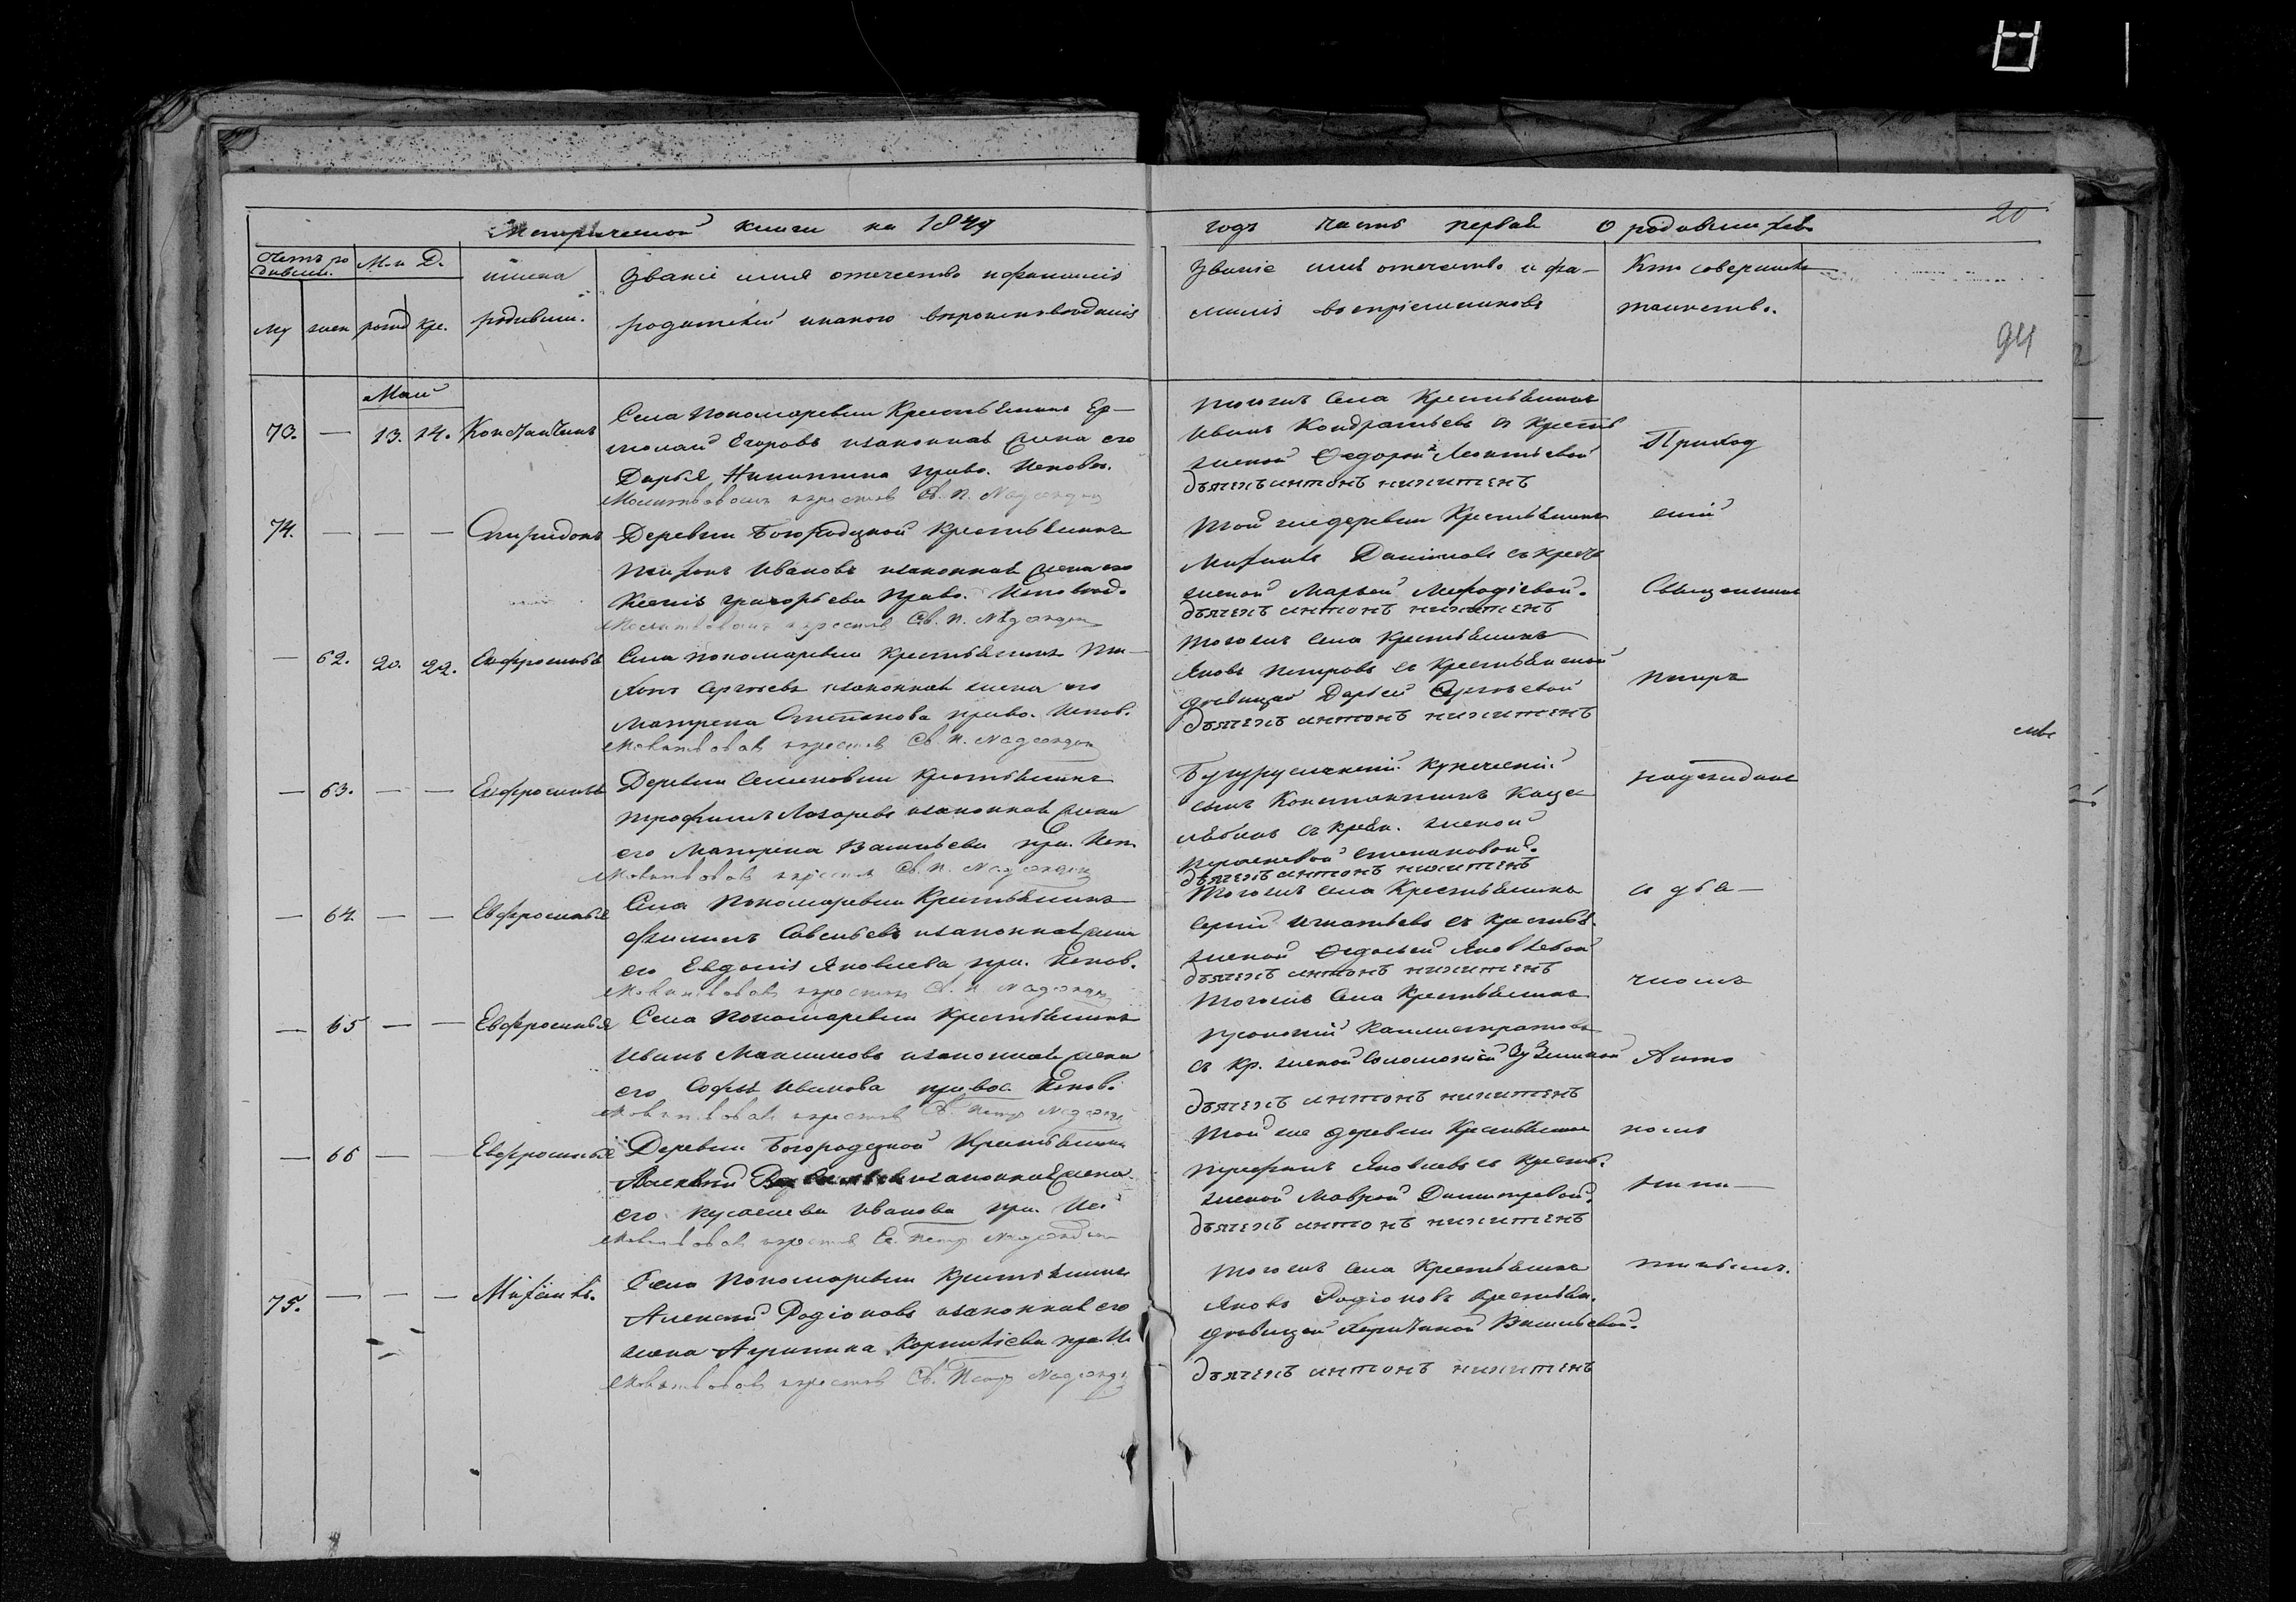 20
94
Метрической книги на 1849
годъ часть первая о родившихся
Счетъ ро
дивши.
М. и Д.
му
жен
рожд
кре.
имена
родивши.
Званіе имя отечество и фамилія
родителей и какого вѣроисповѣданія
Званіе имя отечество и фа-
милія воспріемниковъ
Кто совершилъ
таинство.
Май
73. — 13. 14. Константинъ
Села Пономаревки Крестьянинъ Ер-
молай Егоровъ и законная жена его
Дарья Никитина право. Исповѣ.
Молитвовалъ и крестилъ Св. П. Надеждин
тогожъ Села Крестьянинъ
Иванъ Кондратьевъ и Крестья
женой Ѳедорой Леонтьевой
дьячекъ антонъ никитенъ
Приход
74. — — — Спиридонъ
Деревни Богородцкой Крестьянинъ
Ивановъ и законная жена его
Ксенія григорьева право. Исповѣд.
Молитвовалъ и крестилъ Св. П. Надеждин
Той же деревни Крестьянинъ
Михаилъ Даниловъ съ крест
женой Марьей Меѳодіевой.
дьячекъ антонъ никитенъ
скій
Священникъ
— 62. 20. 22. Евфросинья
Села пономаревки крестьянинъ Ти-
хонъ Сергѣевъ и законная жена его
Матрена Степанова право. Испов.
Молитвовалъ и крестилъ Св. П. Надеждин
тогожъ села крестьянинъ
Яковъ Петровъ съ Крестьянской
дѣвицей Дарьей Сергѣевой
дьячекъ антонъ никитенъ
Петръ
— 63. — — Евфросинья
Деревни Семеновки крестьянинъ
трофимъ Лазаревъ и законная жена
его Матрена Васильева пра. Исп.
Молитвовалъ и крестилъ Св. П. Надеждин
Бугурусланскій Купеческій
сынъ Константинъ
съ крест. женой
Степановой.
дьячекъ антонъ никитенъ
надеждинъ
— 64. — — Евфросинья
Села Пономаревки Крестьянинъ
Филипъ Савельевъ и законная жена
его Евдокія Яковлева пра. Испов.
Молитвовалъ и крестилъ Св. П. Надеждин
Тогожъ села Крестьянинъ
Сергій Игнатьевъ съ крестья.
женой Ѳедосьей Яковлевой
дьячекъ антонъ никитенъ
и дья-
чокъ
— 65 — — Евфросинья
Села Пономаревки Крестьянинъ
Иванъ Максимовъ и законная жена
его Софья Иванова право. Испов.
Молитвовалъ и крестилъ Св. Петр Надежди
Тогожъ Села Крестьянинъ
Прокопій Каллистратовъ
съ кр. женой Соломоніей Кузьминой
дьячекъ антонъ никитенъ
Анто
— 66 — — Евфросинья
Деревни Богородцкой Крестьянинъ
и законная жена
его Иванова пра. Ис.
Молитвовалъ и крестилъ Св. Петр Надеждин
Той же деревни Крестьянинъ
Трофимъ Яковлевъ съ крестья.
женой Маврой Димитревой.
дьячекъ антонъ никитенъ
номъ
Ники-
75. — — — Михаилъ.
Села Пономаревки Крестьянинъ
Алексѣй Родіоновъ и законная его
жена Агрипина Корниліева пра. И.
Молитвовалъ и крестилъ Св. Петр Надежди
тогожъ Села Крестьянинъ
Яковъ Родіоновъ крестьян.
дѣвицей Харитиной Васильевой.
дьячекъ антонъ никитенъ